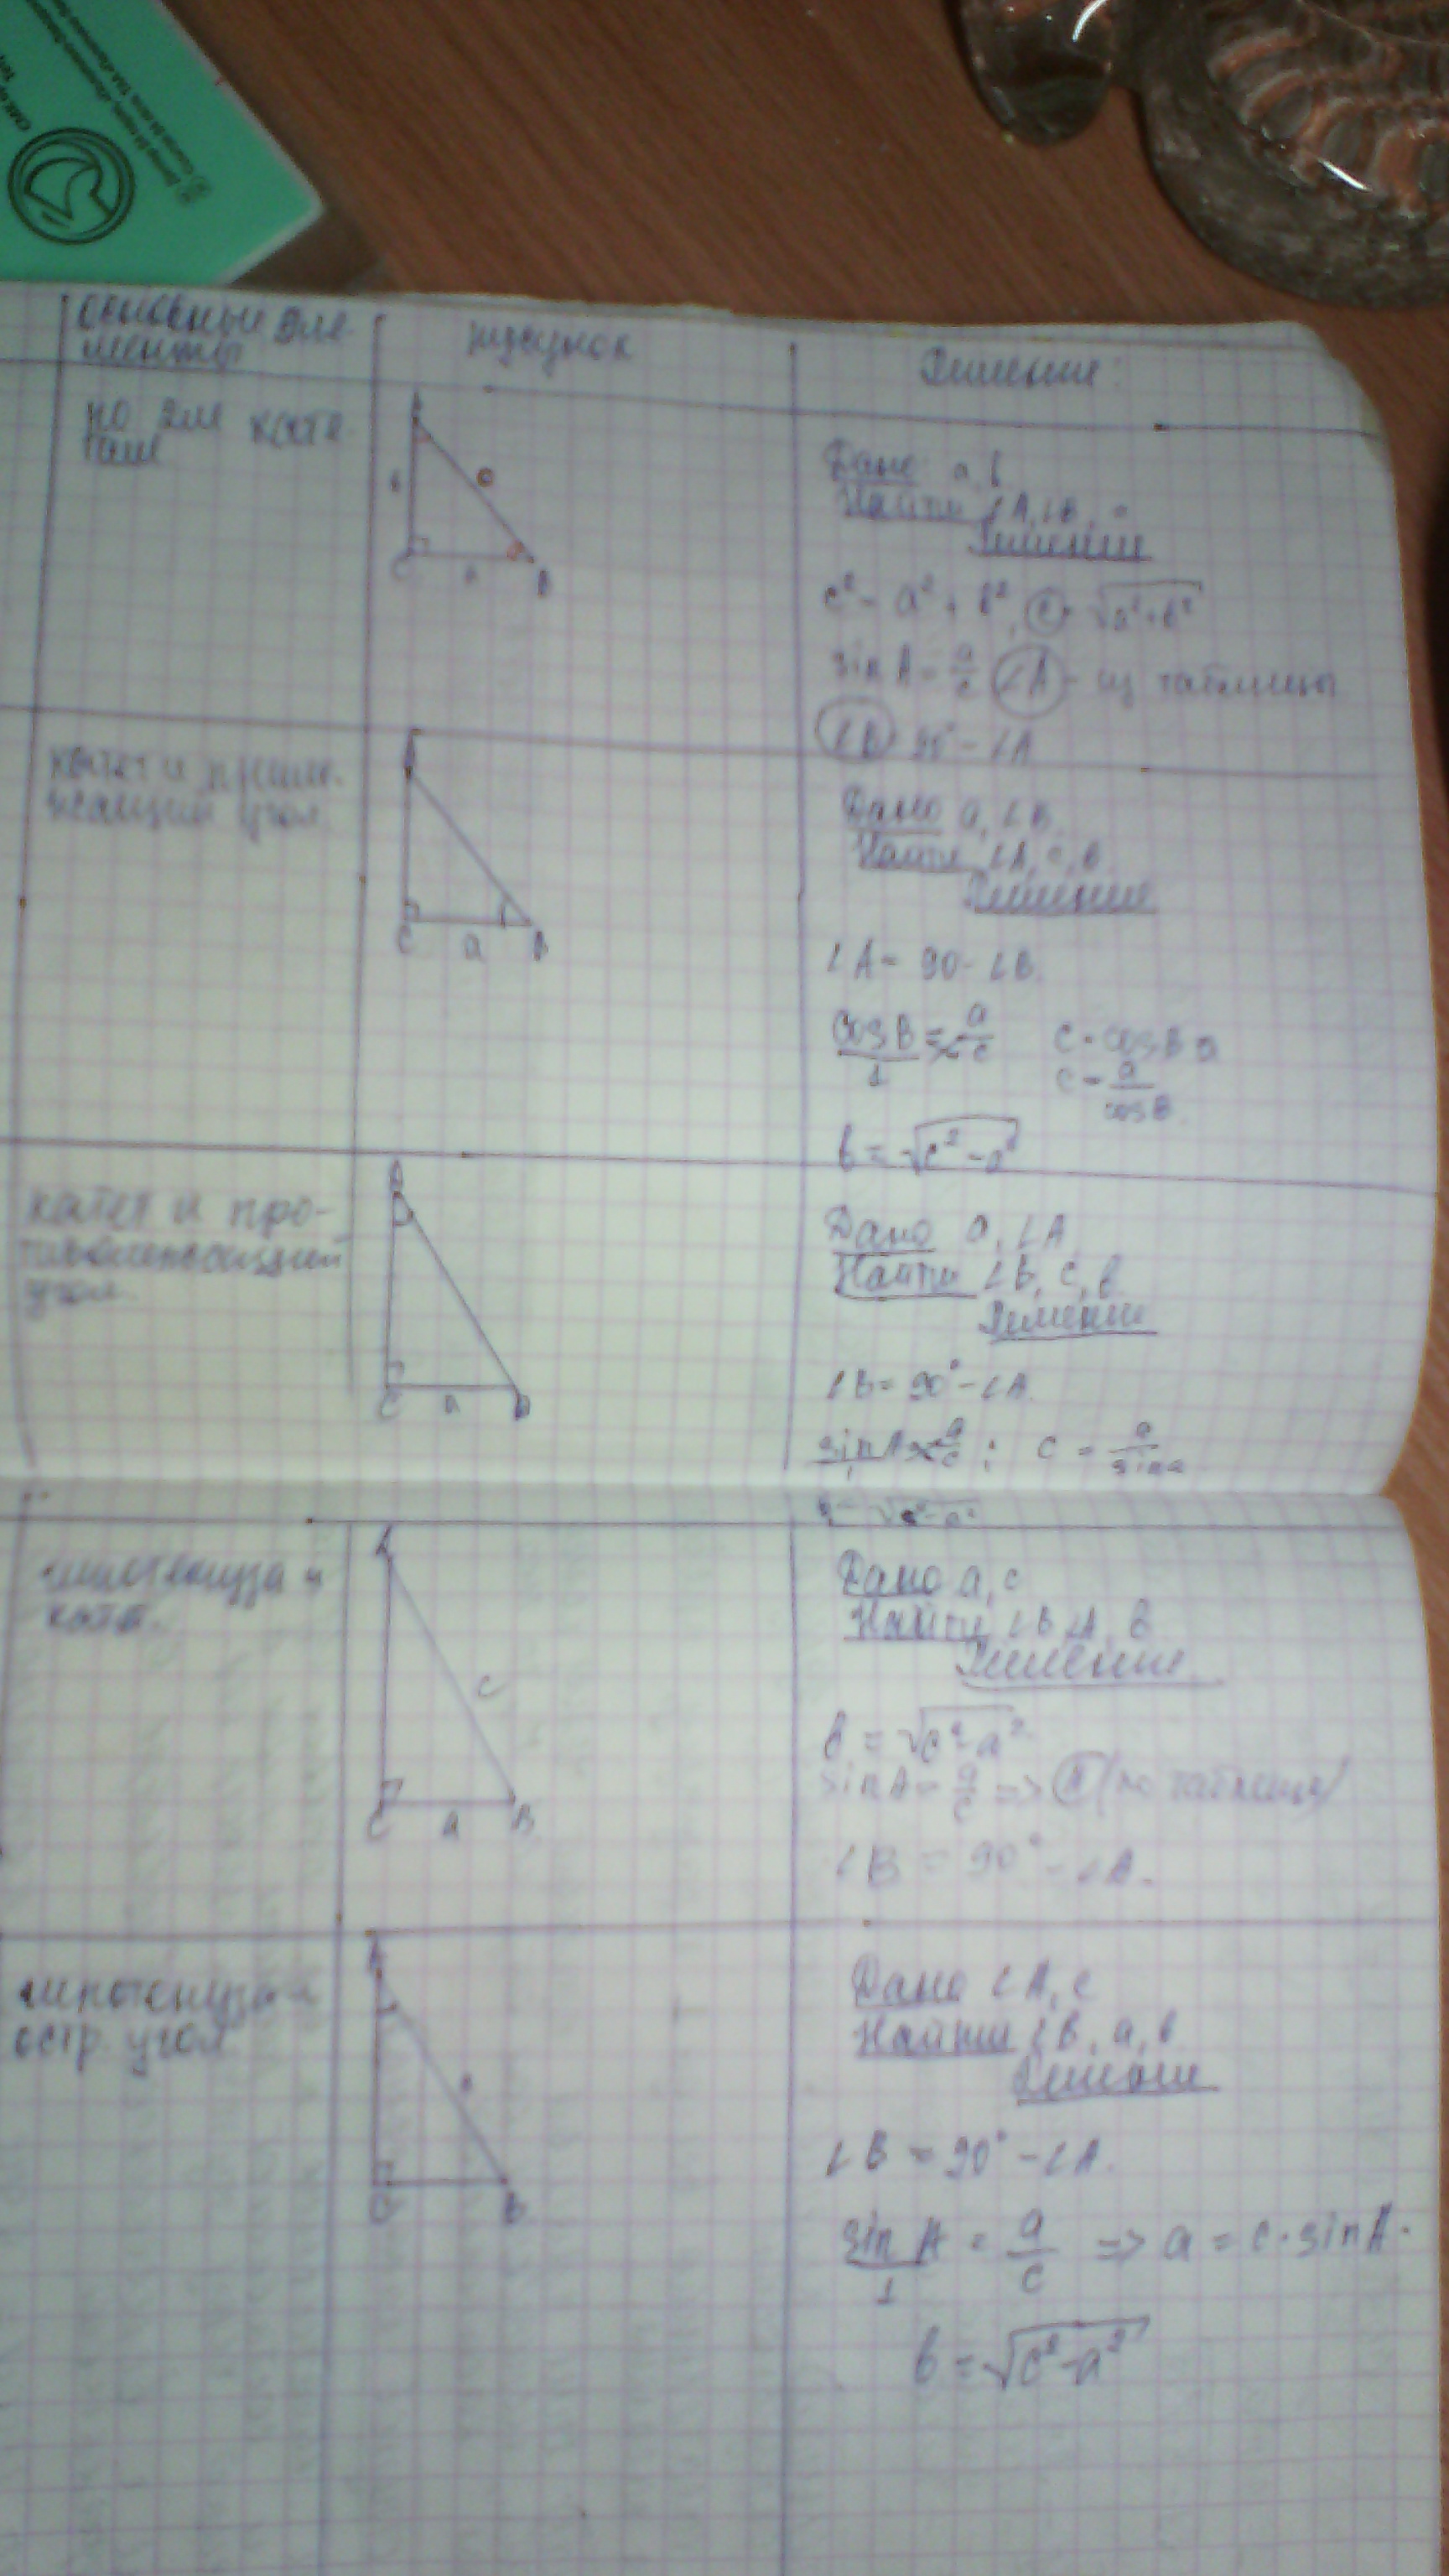 основные эле-
менты
рисунок
Решение:
по двум кате
там
A
b
c
C
a
B
Дано a, b
Найти ∠A, ∠B, c
Решение
c² = a² + b², c = √a²+b²
sin A = a/c ∠A - из таблицы
∠B = 90° - ∠A
катет и приле-
жащий угол
A
C
a
B
Дано a, ∠B.
Найти ∠A, c, b
Решение
∠A = 90 - ∠B.
cos B/1 = a/c
c = a/cos B
b = √c² - a²
катет и про-
тиволежащий
угол.
A
C
a
B
Дано a, ∠A
Найти ∠B, c, b
Решение
∠B = 90° - ∠A.
sin A/1 = a/c ; c = a/sin a
b = √c² - a²
гипотенуза и
кат.
A
c
C
a
B
Дано a, c
Найти ∠B, ∠A, b
Решение
b = √c² - a²
sin A = a/c => A (по таблице)
∠B = 90° - ∠A.
гипотенуза и
остр. угол
A
c
C
B
Дано ∠A, c
Найти ∠B, a, b
Решение
∠B = 90° - ∠A.
sin A/1 = a/c => a = c · sin A.
b = √c² - a²